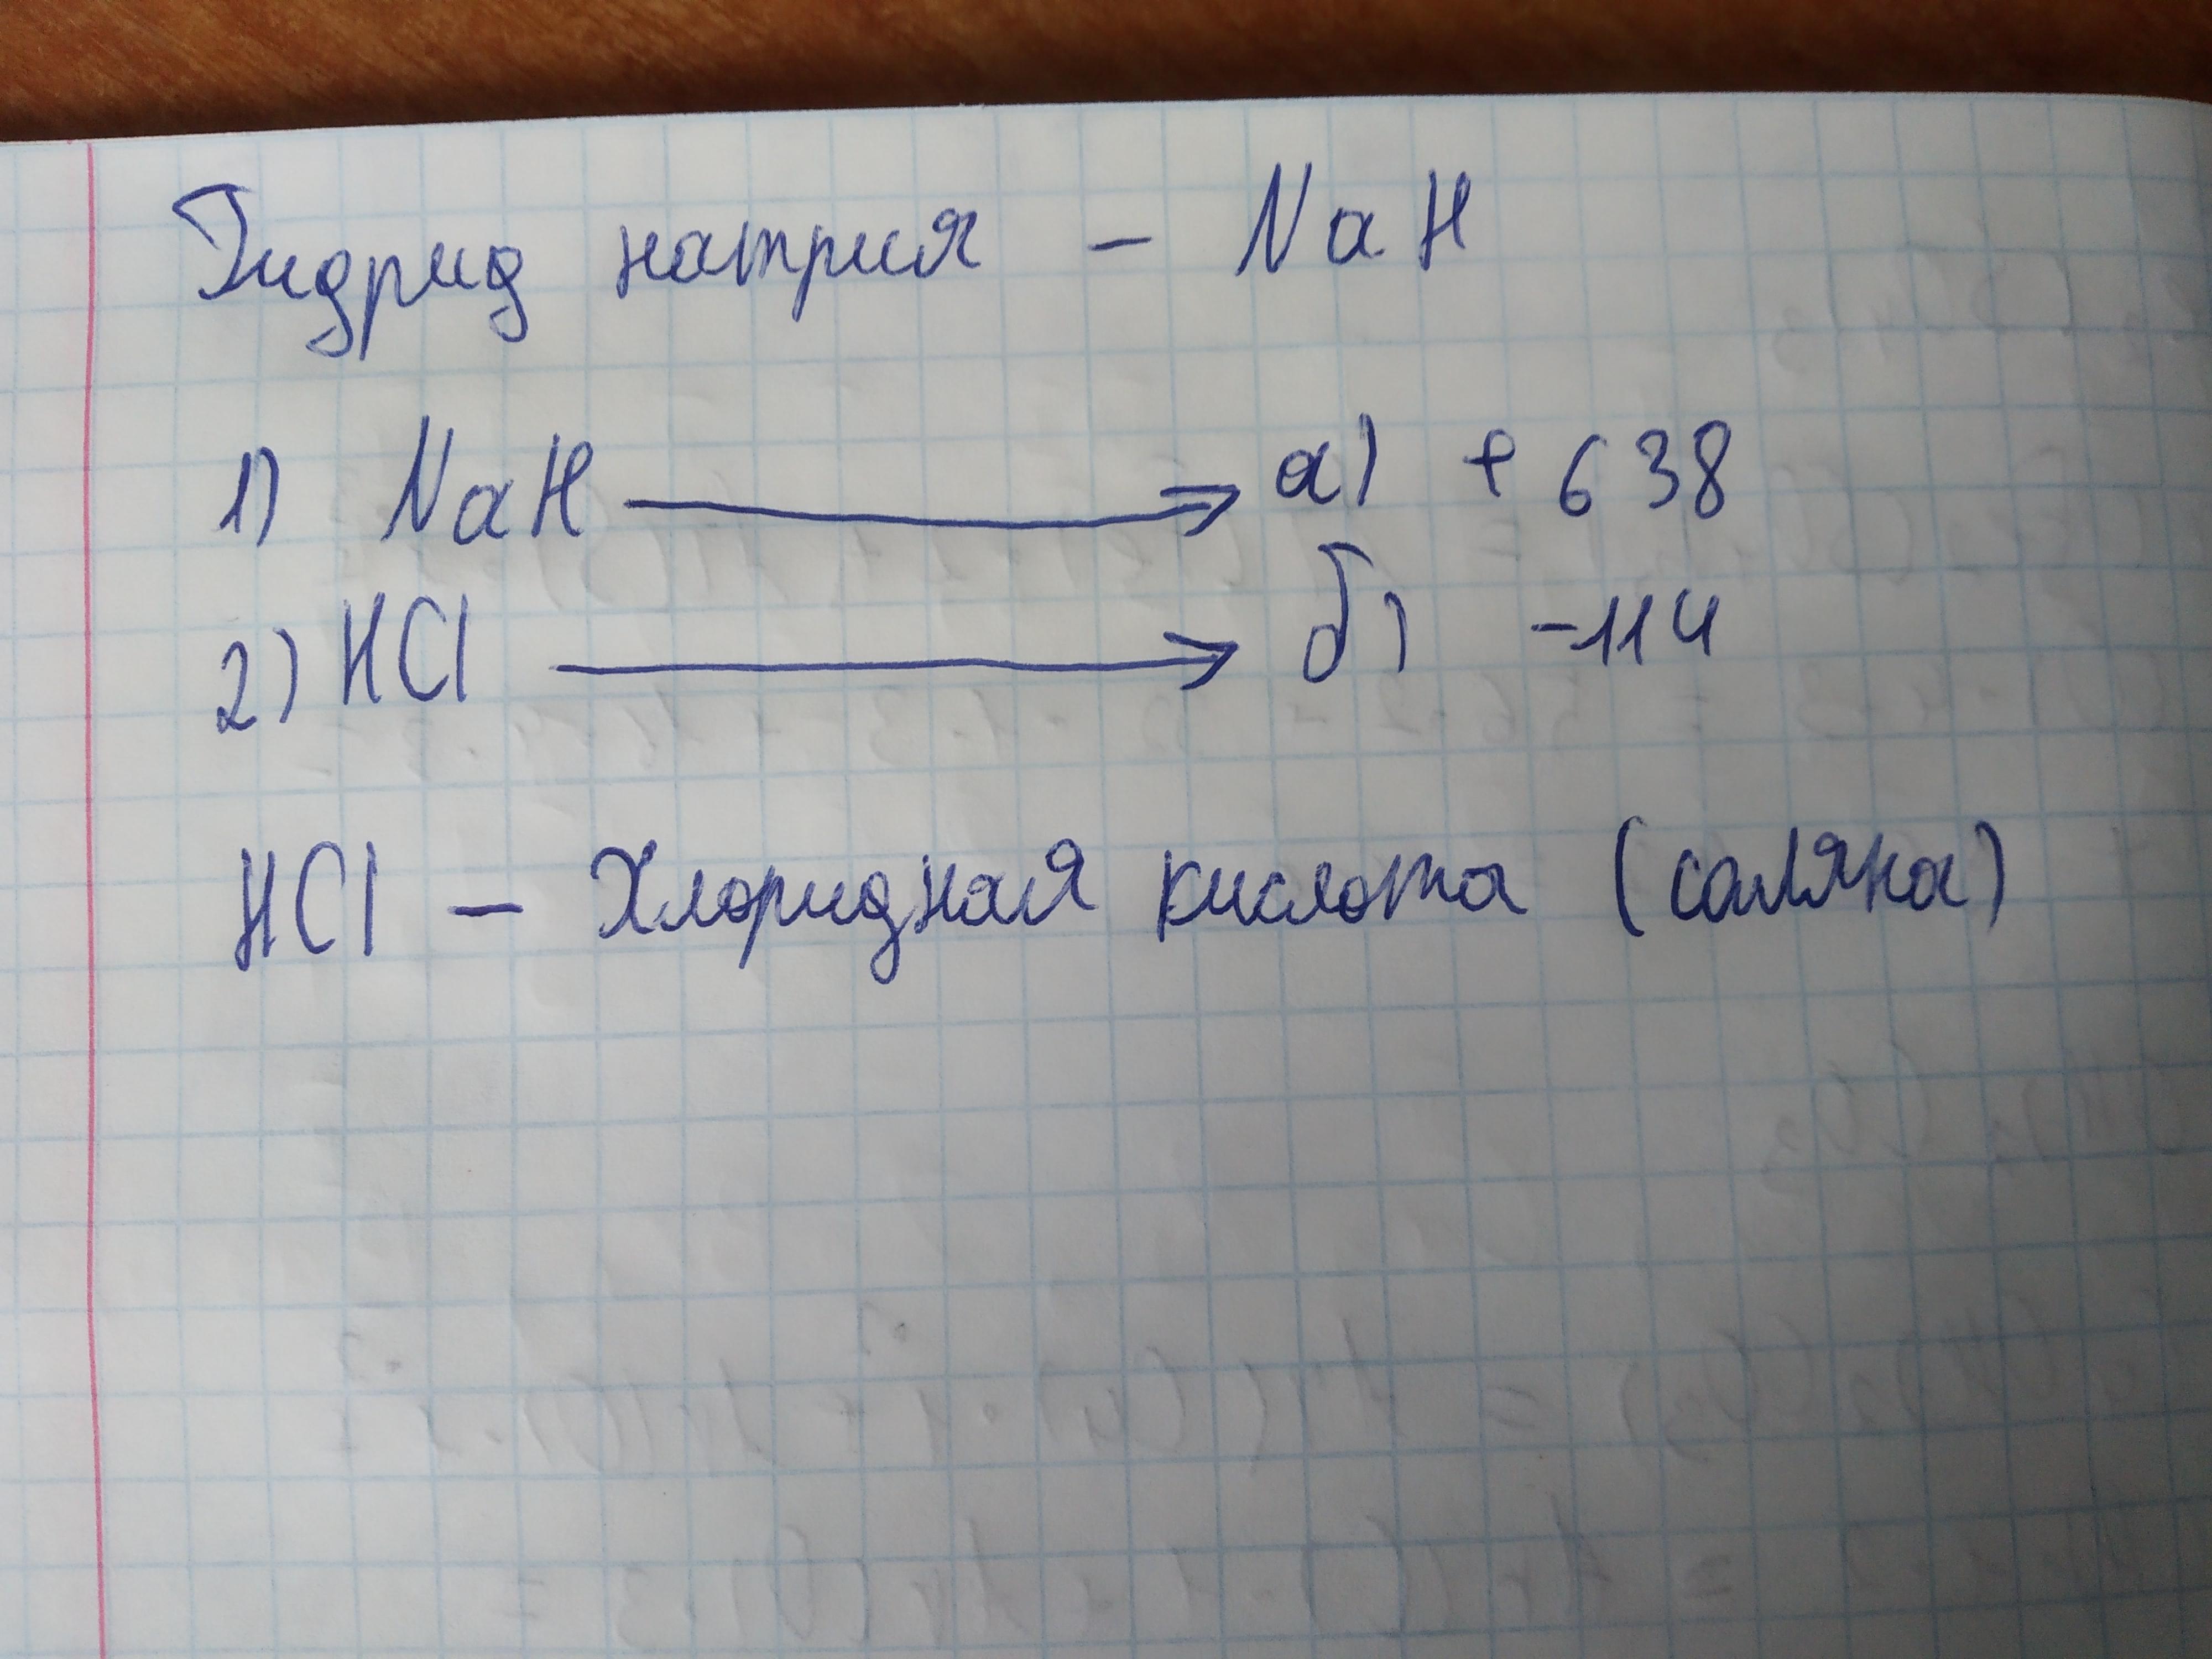 Гидрид натрия - NaH
1) NaH → а) + 638
2) HCl → б) -114
HCl - Хлоридная кислота (соляна)